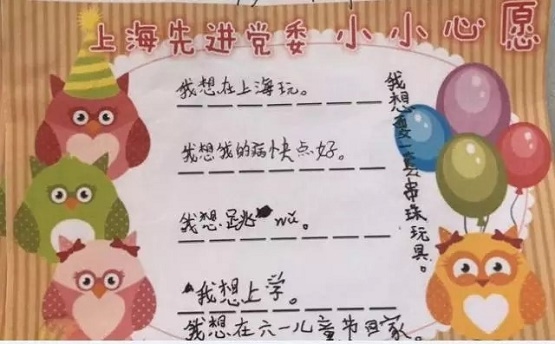 上海先进党委 小小心愿
我想在上海玩。
我想我的病快点好。
我想跳wǔ。
我想上学。
我想在六一儿童节回家。
我想要一套串珠玩具。